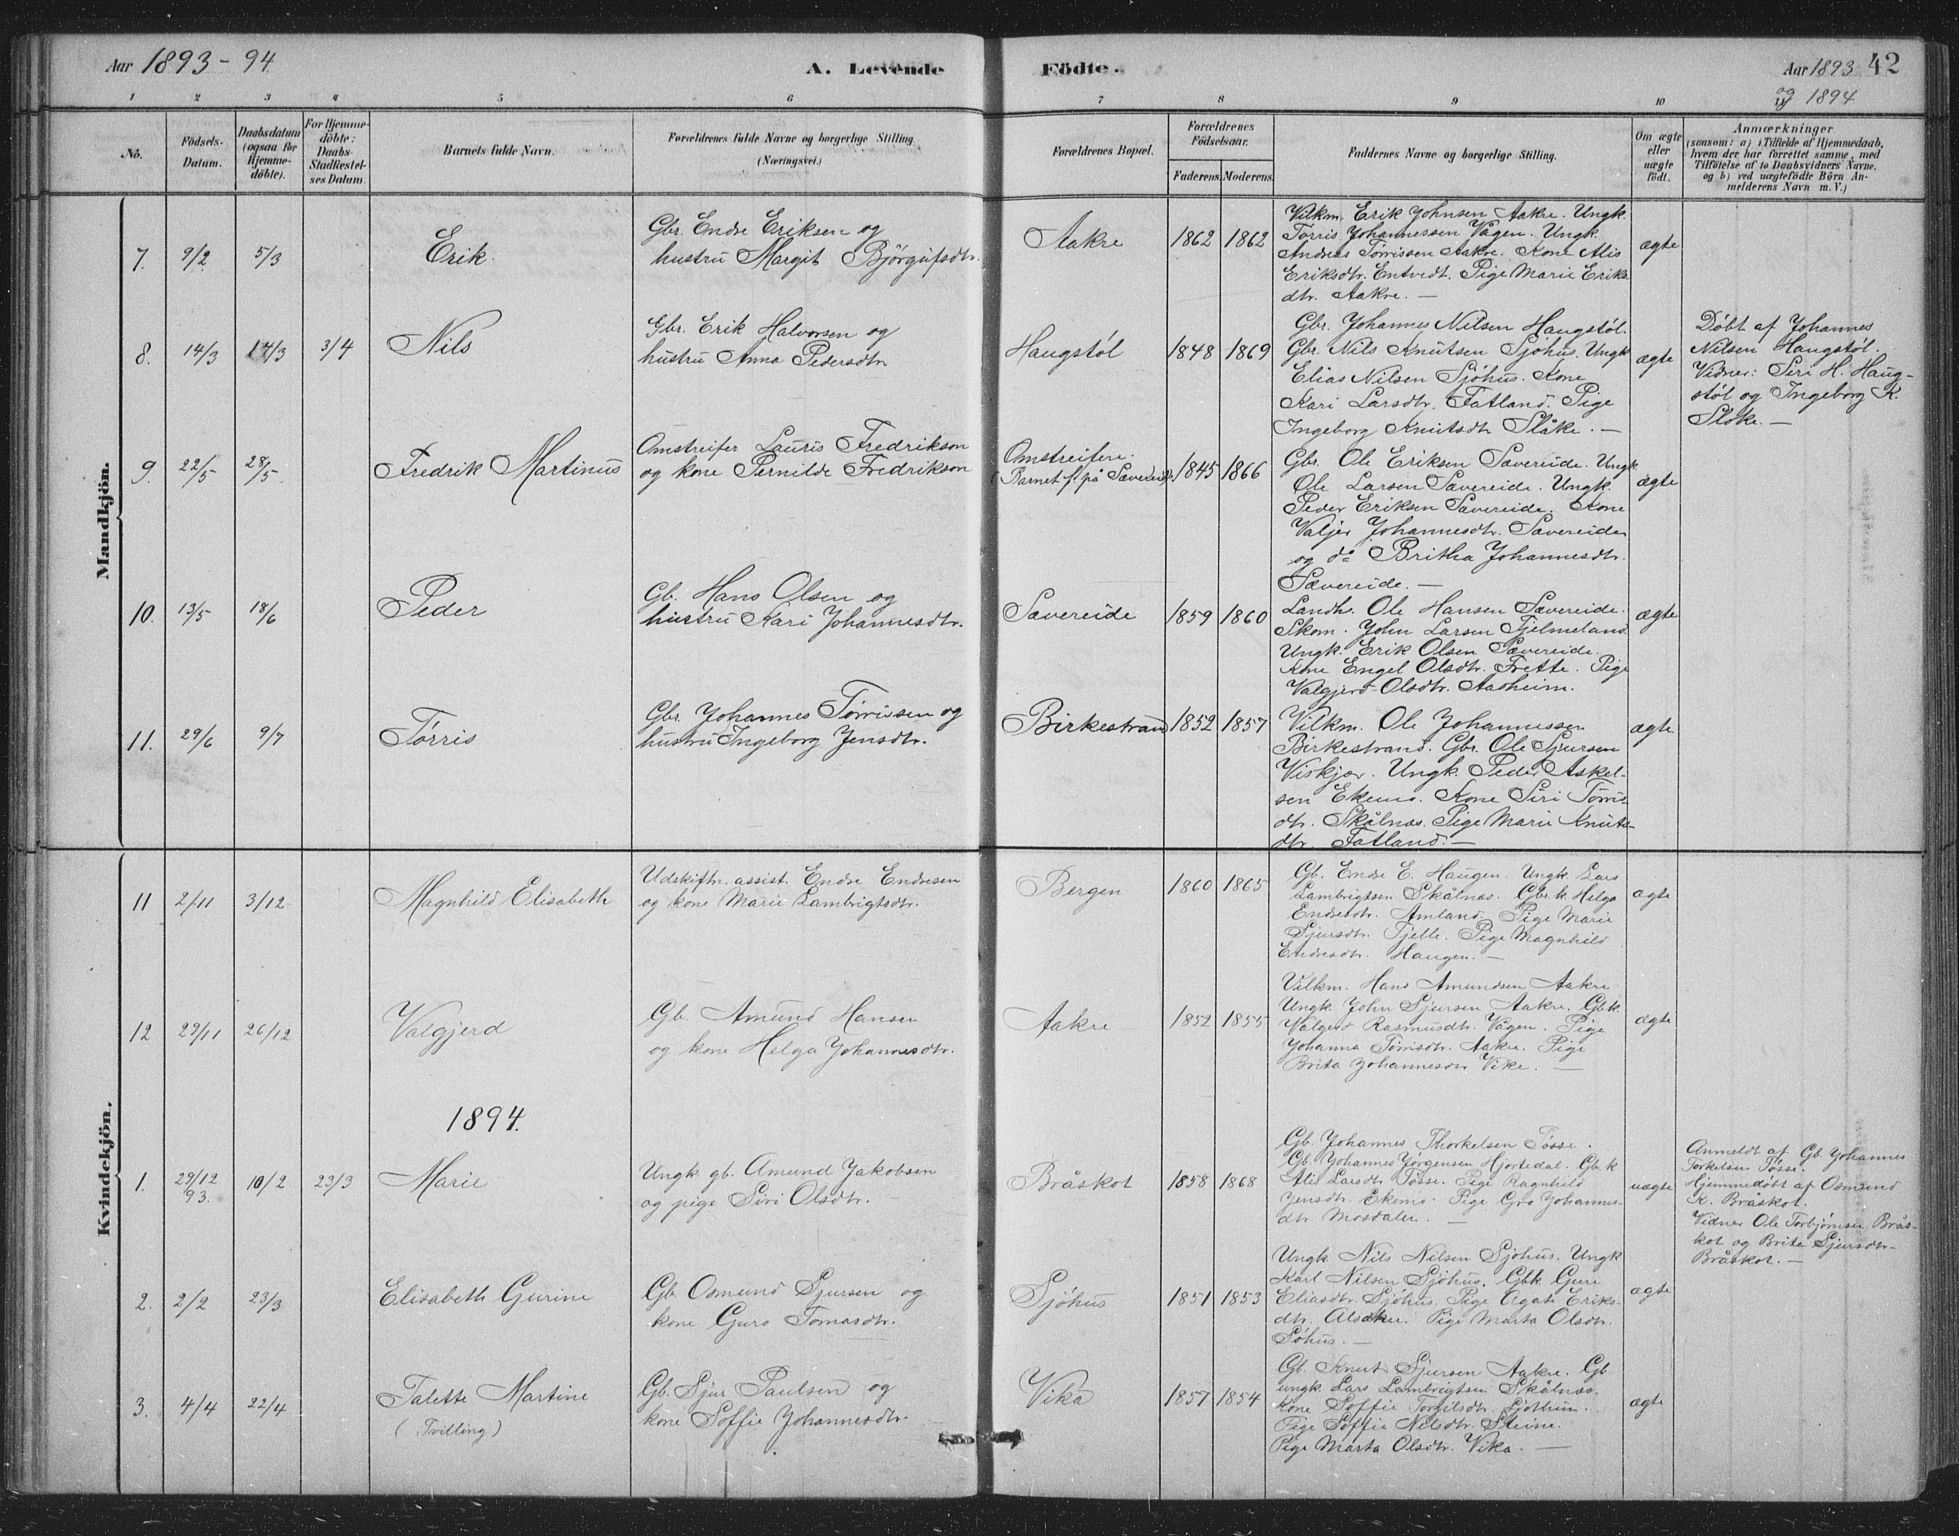 Aar 1893 - 94
A. Levende
Födte.
Aar 1893 42
og 1894
1 2 3 4 5 6 7 8 9 10
No.
Födsels-
Datum.
Daabsdatum
(ogsaa for
Hjemme-
döbte).
For Hjemme-
döbte:
Daabs-
Stadfæstel-
ses Datum.
Barnets fulde Navn.
Forældrenes fulde Navne og borgerlige Stilling
(Næringsvei.)
Forældrenes Bopæl.
Forældrenes
Födselsaar.
Faderens. Moderens.
Faddernes Navne og borgerlige Stilling.
Om ægte
eller
uægte
født.
Anmærkninger
(saasom: a) i Tilfælde af Hjemmedaab,
hvem der har forrettet samme, med
Tilföielse af to Daabsvidners Navne,
og b) ved uægtefödte Börn An-
melderens Navn m. V.)
Mandkjön.
7. 9/2 5/3
Erik.
Gbr. Endre Eriksen og
hustru Margit Bjørgufsdtr.
Aakre
1862 1862
Vilkm. Erik Johnsen Aakre. Ungk.
Tørris Johannessen Vågen. Ungk.
Andreas Tørrissen Aakre. Kone Alis
Eriksdtr. Entvedt. Pige Marie Eriks-
dtr. Aakre. —
ægte
8. 14/3 17/3 3/4
Nils
Gbr. Erik Halvorsen og
hustru Anna Pedersdtr.
Haugstøl
1848 1869
Gbr. Johannes Nilsen Haugstøl.
Gbr. Nils Knutsen Sjöhus. Ungk
Elias Nilsen Sjöhus. Kone
Kari Larsdtr. Fatland. Pige
Ingeborg Knutsdtr Slåke. —
ægte
Døbt af Johannes
Nilsen Haugstøl.
Vidner: Siri H. Haug-
støl og Ingeborg K.
Sloke. —
9. 22/5 28/5.
Fredrik Martinus
Omstreifer Lauris Fredrikson
og kone Pernilde Fredrikson
Omstreifere.
(Barnet f. på Sævereide)
1845 1866
Gbr. Ole Eriksen Sævereide. Ungk
Ole Larsen Sævereide. Ungk.
Peder Eriksen Sævereide. Kone
Valjer Johannesdtr. Sævereide
og do Britha Johannesdtr.
Sævereide. —
ægte
10. 13/5 18/6
Peder
Gb. Hans Olsen og
hustru Kari Johannesdtr.
Sævereide
1859 1860
Landh. Ole Hansen Sævereide.
Skom. John Larsen Fjelmeland.
Ungk. Erik Olsen Sævereide.
Kone Engel Olsdtr. Frette. Pige
Valgjerd Olsdtr. Aasheim.
ægte
11. 29/6 9/7
Tørris
Gbr. Johannes Tørrissen og
hustru Ingeborg Jensdtr.
Birkestrand
1852 1857
Vilkm. Ole Johannessen
Birkestrand. Gbr. Ole Sjursen
Viskjær. Ungk. Peder Askel-
sen Ekenes. Kone Siri Tørris-
dtr. Skålnæs. Pige Marie Knuts-
dtr. Fatland. —
ægte
Kvindekjön.
11 2/11 3/12.
Magnhild Elisabeth
Udskiftn. assist. Endre Endresen
og kone Marie Lambrigtsdtr.
Bergen
1860 1865
Gb. Endre E. Haugen. Ungk Lars
Lambrigtsen Skålnæs. Gbr.k Helga
Endresdtr. Amland. Pige Marie
Sjursdtr. Tjelle. Pige Magnhild
Endresdtr. Haugen. —
ægte
12 29/11 26/12
Valgjerd
Gb. Amund Hansen
og kone Helga Johannesdtr.
Aakre
1852 1855
Vilkm. Hans Amundsen Aakre
Ungk. John Sjursen Aakre. Gb.k.
Valgerd Rasmusdtr. Vågen. Pige
Johanna Tørrisdtr. Aakre. Pige
Brita Johannesdtr Vike. —
ægte
1894.
1. 29/12 93. 10/2 23/3
Marie
Ungk. gb. Amund Jakobsen
og pige Siri Olsdtr.
Bråskot
1858 1868
Gb. Johannes Thorkelsen Tøsse.
Gb. Johannes Jørgensen Hjortedal. Gb.k
Alis Larsdtr. Tøsse. Pige Ragnhild
Jensdtr. Ekenes. Pige Gro Johannes-
dtr. Mosdalen. —
uægte
Anmeldt af Gb. Johannes
Torkelsen Tøsse.
Hjemmedøbt af Osmund
K. Bråskot.
Vidner Ole Torbjørnsen Brås-
kot og Brite Sjursdtr.
Bråskot. —
2. 2/2 23/3
Elisabeth Gurine
Gb. Osmund Sjursen og
kone Guro Tomasdtr.
Sjöhus
1851 1853
Ungk Nils Nilsen Sjöhus. Ungk
Karl Nilsen Sjöhus. Gbk Guri
Eliasdtr. Sjöhus. Pige Agate Eriks-
dtr. Alsaker. Pige Marta Olsdtr.
Söhus. —
ægte
3. 4/4 22/4
Talette Martine
(Tvilling)
Gb. Sjur Paulsen og
kone Soffie Johannesdtr.
Vika
1857 1854
Gb. Knut Sjursen Aakre. Gb
ungk. Lars Lambrigtsen Skålnæs.
Kone Soffie Torgilsdtr. Sjötheim.
Pige Soffie Nilsdtr. Steine.
Pige Marta Olsdtr. Vika. —
ægte